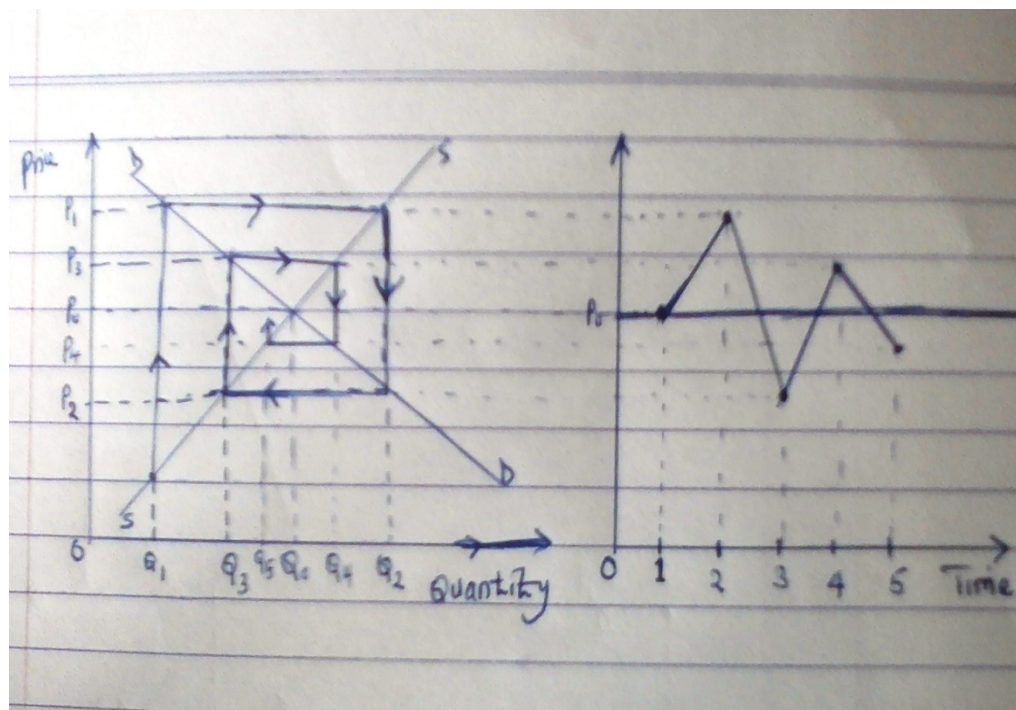 Price
D
S
P₁
P₃
P₀
P₄
P₂
P₀
S
D
0
Q₁ Q₃ Q₅ Q₀ Q₄ Q₂
Quantity
0 1 2 3 4 5 Time